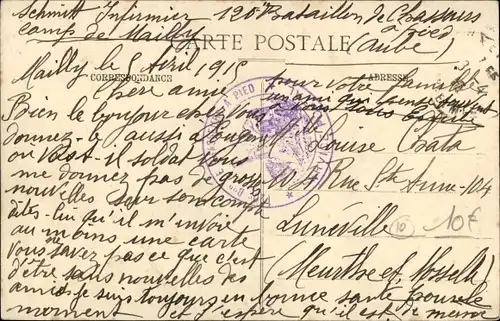 Schmitt Infirmier 120 Bataillon de Chasseurs
à pied
camp de Mailly (Aube)
CARTE POSTALE
Mailly le 5 Avril 1915
CORRESPONDANCE
ADRESSE
Chère amie
pour votre famille
un ami qui pense souvent
Bien le bonjour chez vous
Mlle Louise
donnez
le aussi à
où est-il soldat vous
me donnez pas de grosses
104 Rue Ste Anne 104
nouvelles sur son compte
dites-lui qu'il m'envoie
au moins une carte
Luneville
10
10F
Vous ne savez pas ce que c'est
d'être sans nouvelles des
(Meurthe et Moselle)
amis je suis toujours en bonne santé pour le
moment et j'espère qu'il est de même
A PIED